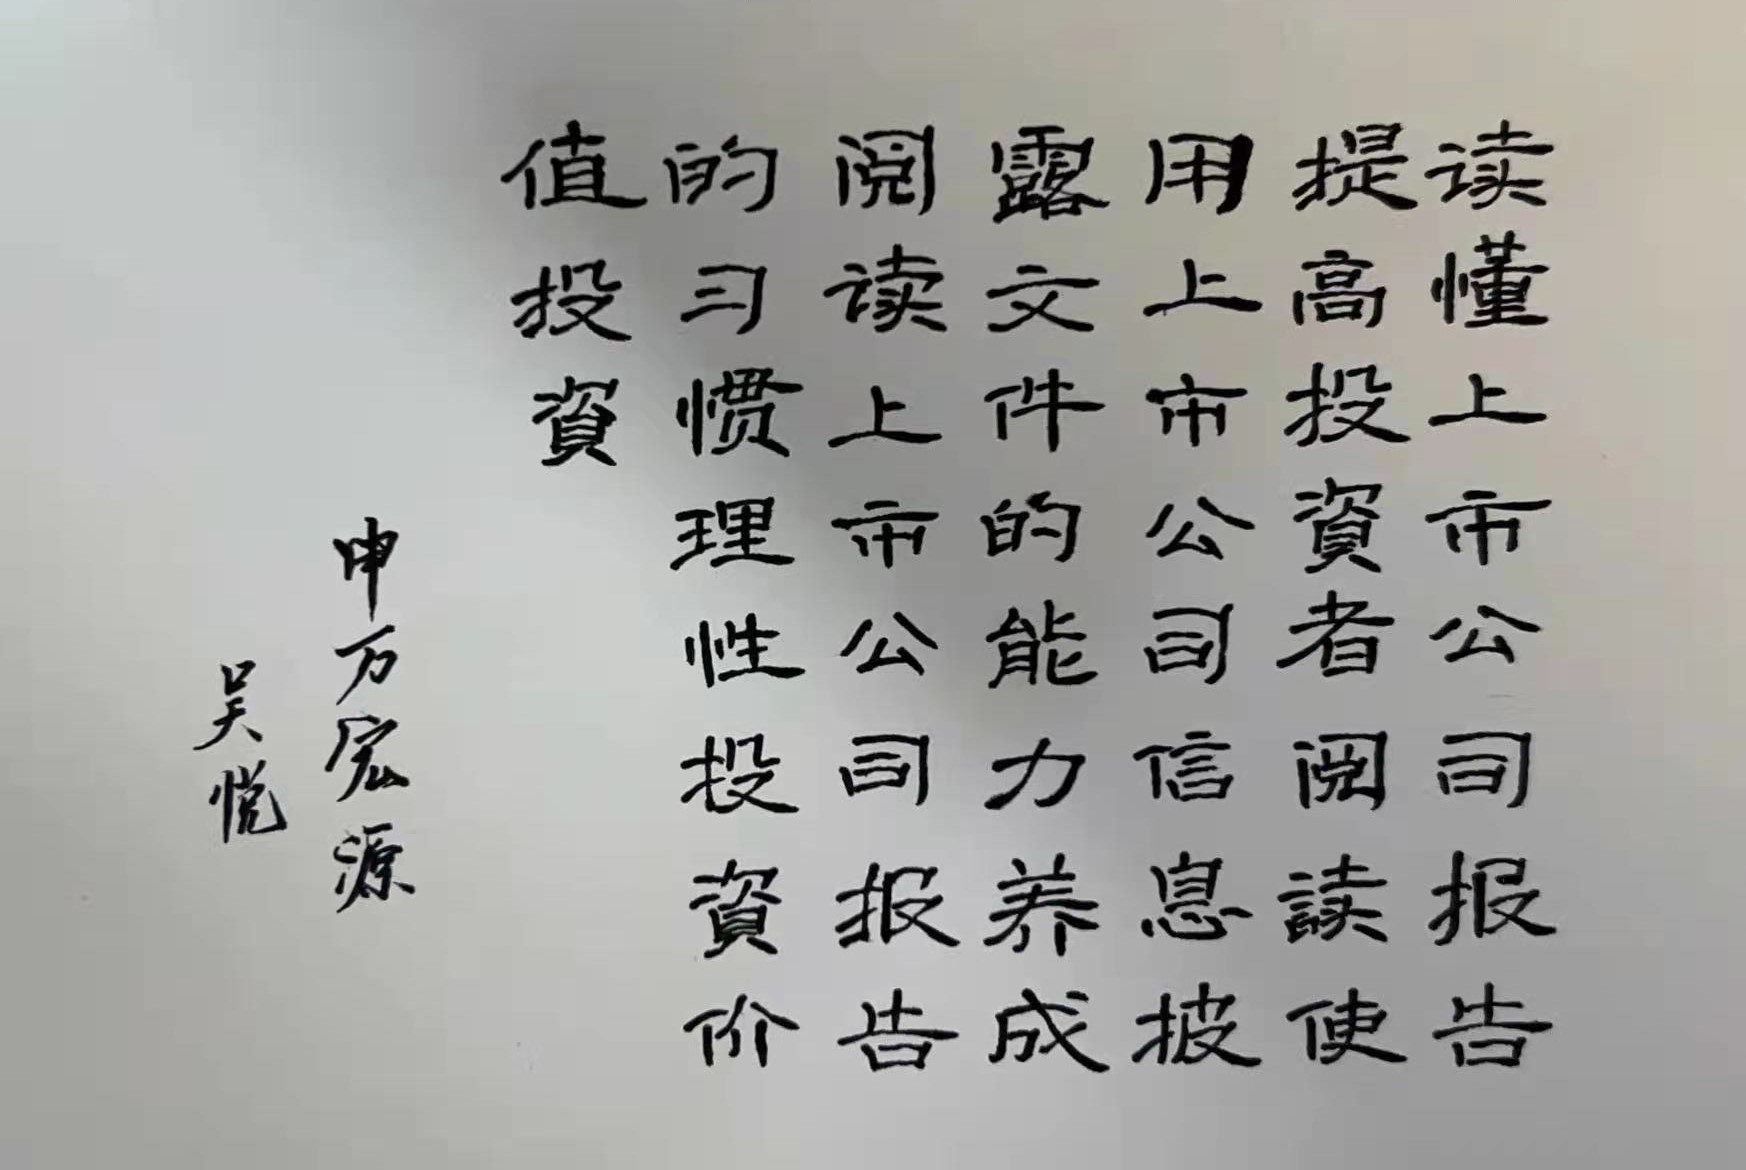 读懂上市公司报告
提高投資者阅读使
用上市公司信息披
露文件的能力养成
阅读上市公司报告
的习惯理性投資价
值投資
申万宏源
吴悦